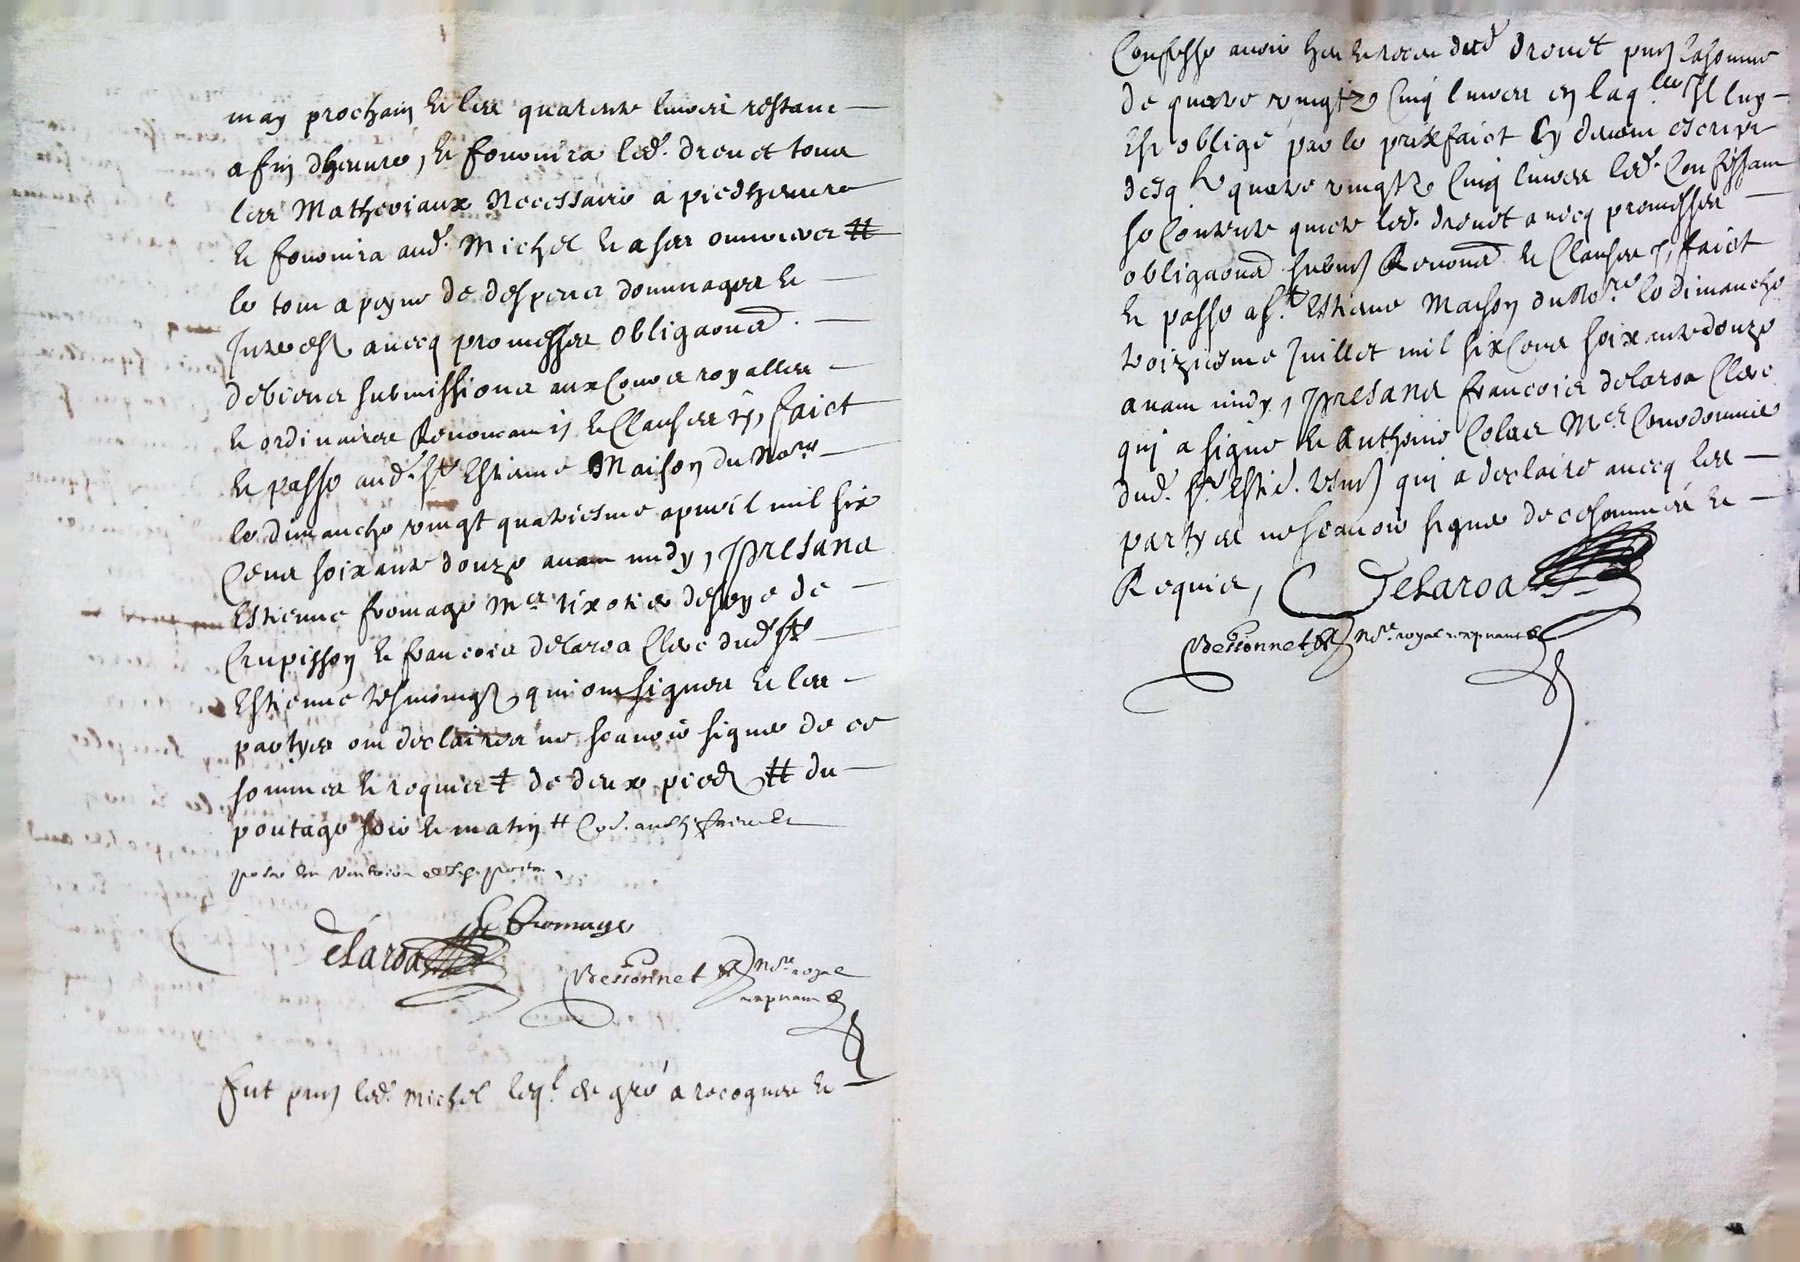 may prochain et les quarente livres restant
a fin d'heuvre, et fournira led. drouet tous
les Matheriaux Necessaire a pied heuvre
et fournira aud. Michel et a ses ouvriers #
le tout a peyne de despens dommages et
Interest avecq promesses obligaons.
de biens submissions aux Cours royalles
et ordinaires Renoncant et Clauses faict
et passe aud. st Estienne Maison du No.re
le dimanche vingt quatriesme apvril mil six
Cens soixante douze avant midy, presans
Estienne fromage M.e de soye de
Crupisson et francois delaroa Clerc dud st
Estienne tesmoings qui ont signes et les
partyes ont desclaires ne scavoir signe de ce
sommes et requies + de deux pieds # du
poutage soir et matin #
fromage
delaroa
Bessonnet No.re royal
Fut pnt led. Michel leq.l de gré a recogneu et
Confesse avoir heu et receu dud drouet pnt la somme
de quatre vingtz Cinq livres en laq.lle Il luy
Est obligé par le prixfaict Cy devant escript
desq. quatre vingtz Cinq livres led. Confessant
se Contente quicte led. drouet avecq promesses
obligaons submis Renon. et Clauses faict
et passe a st. Estienne Maison du No.re le dimanche
troiziesme Juillet mil six Cens soixante douze
avant midy, presans francois delaroa Clerc
qui a signe et Anthoine Colas M.e Courdonnie
dud. st. Esti. tesm qui a desclaire avecq les
partyes ne scavoir signe de ce sommes et
Requies,
Delaroa
Bessonnet No.re royal